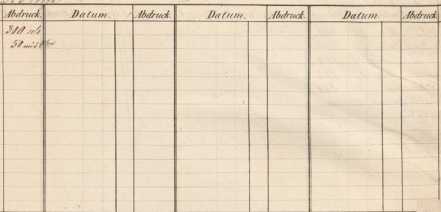 Abdruck. Datum. Abdruck. Datum. Abdruck. Datum. Abdruck.
300
50 mit